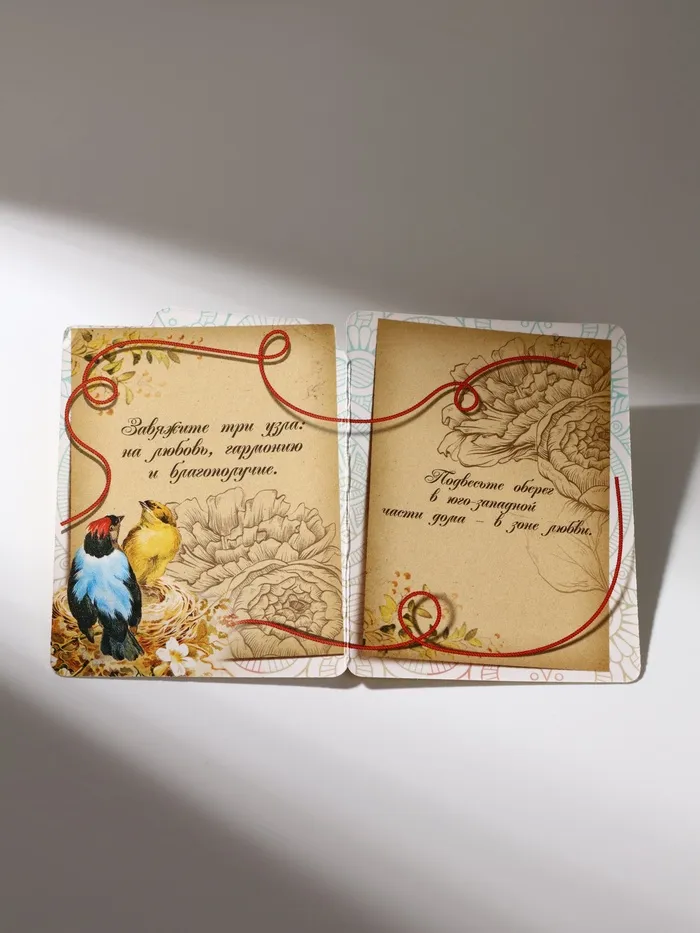 Завяжите три узла:
на любовь, гармонию
и благополучие.
Подвесьте оберег
в юго-западной
части дома – в зоне любви.